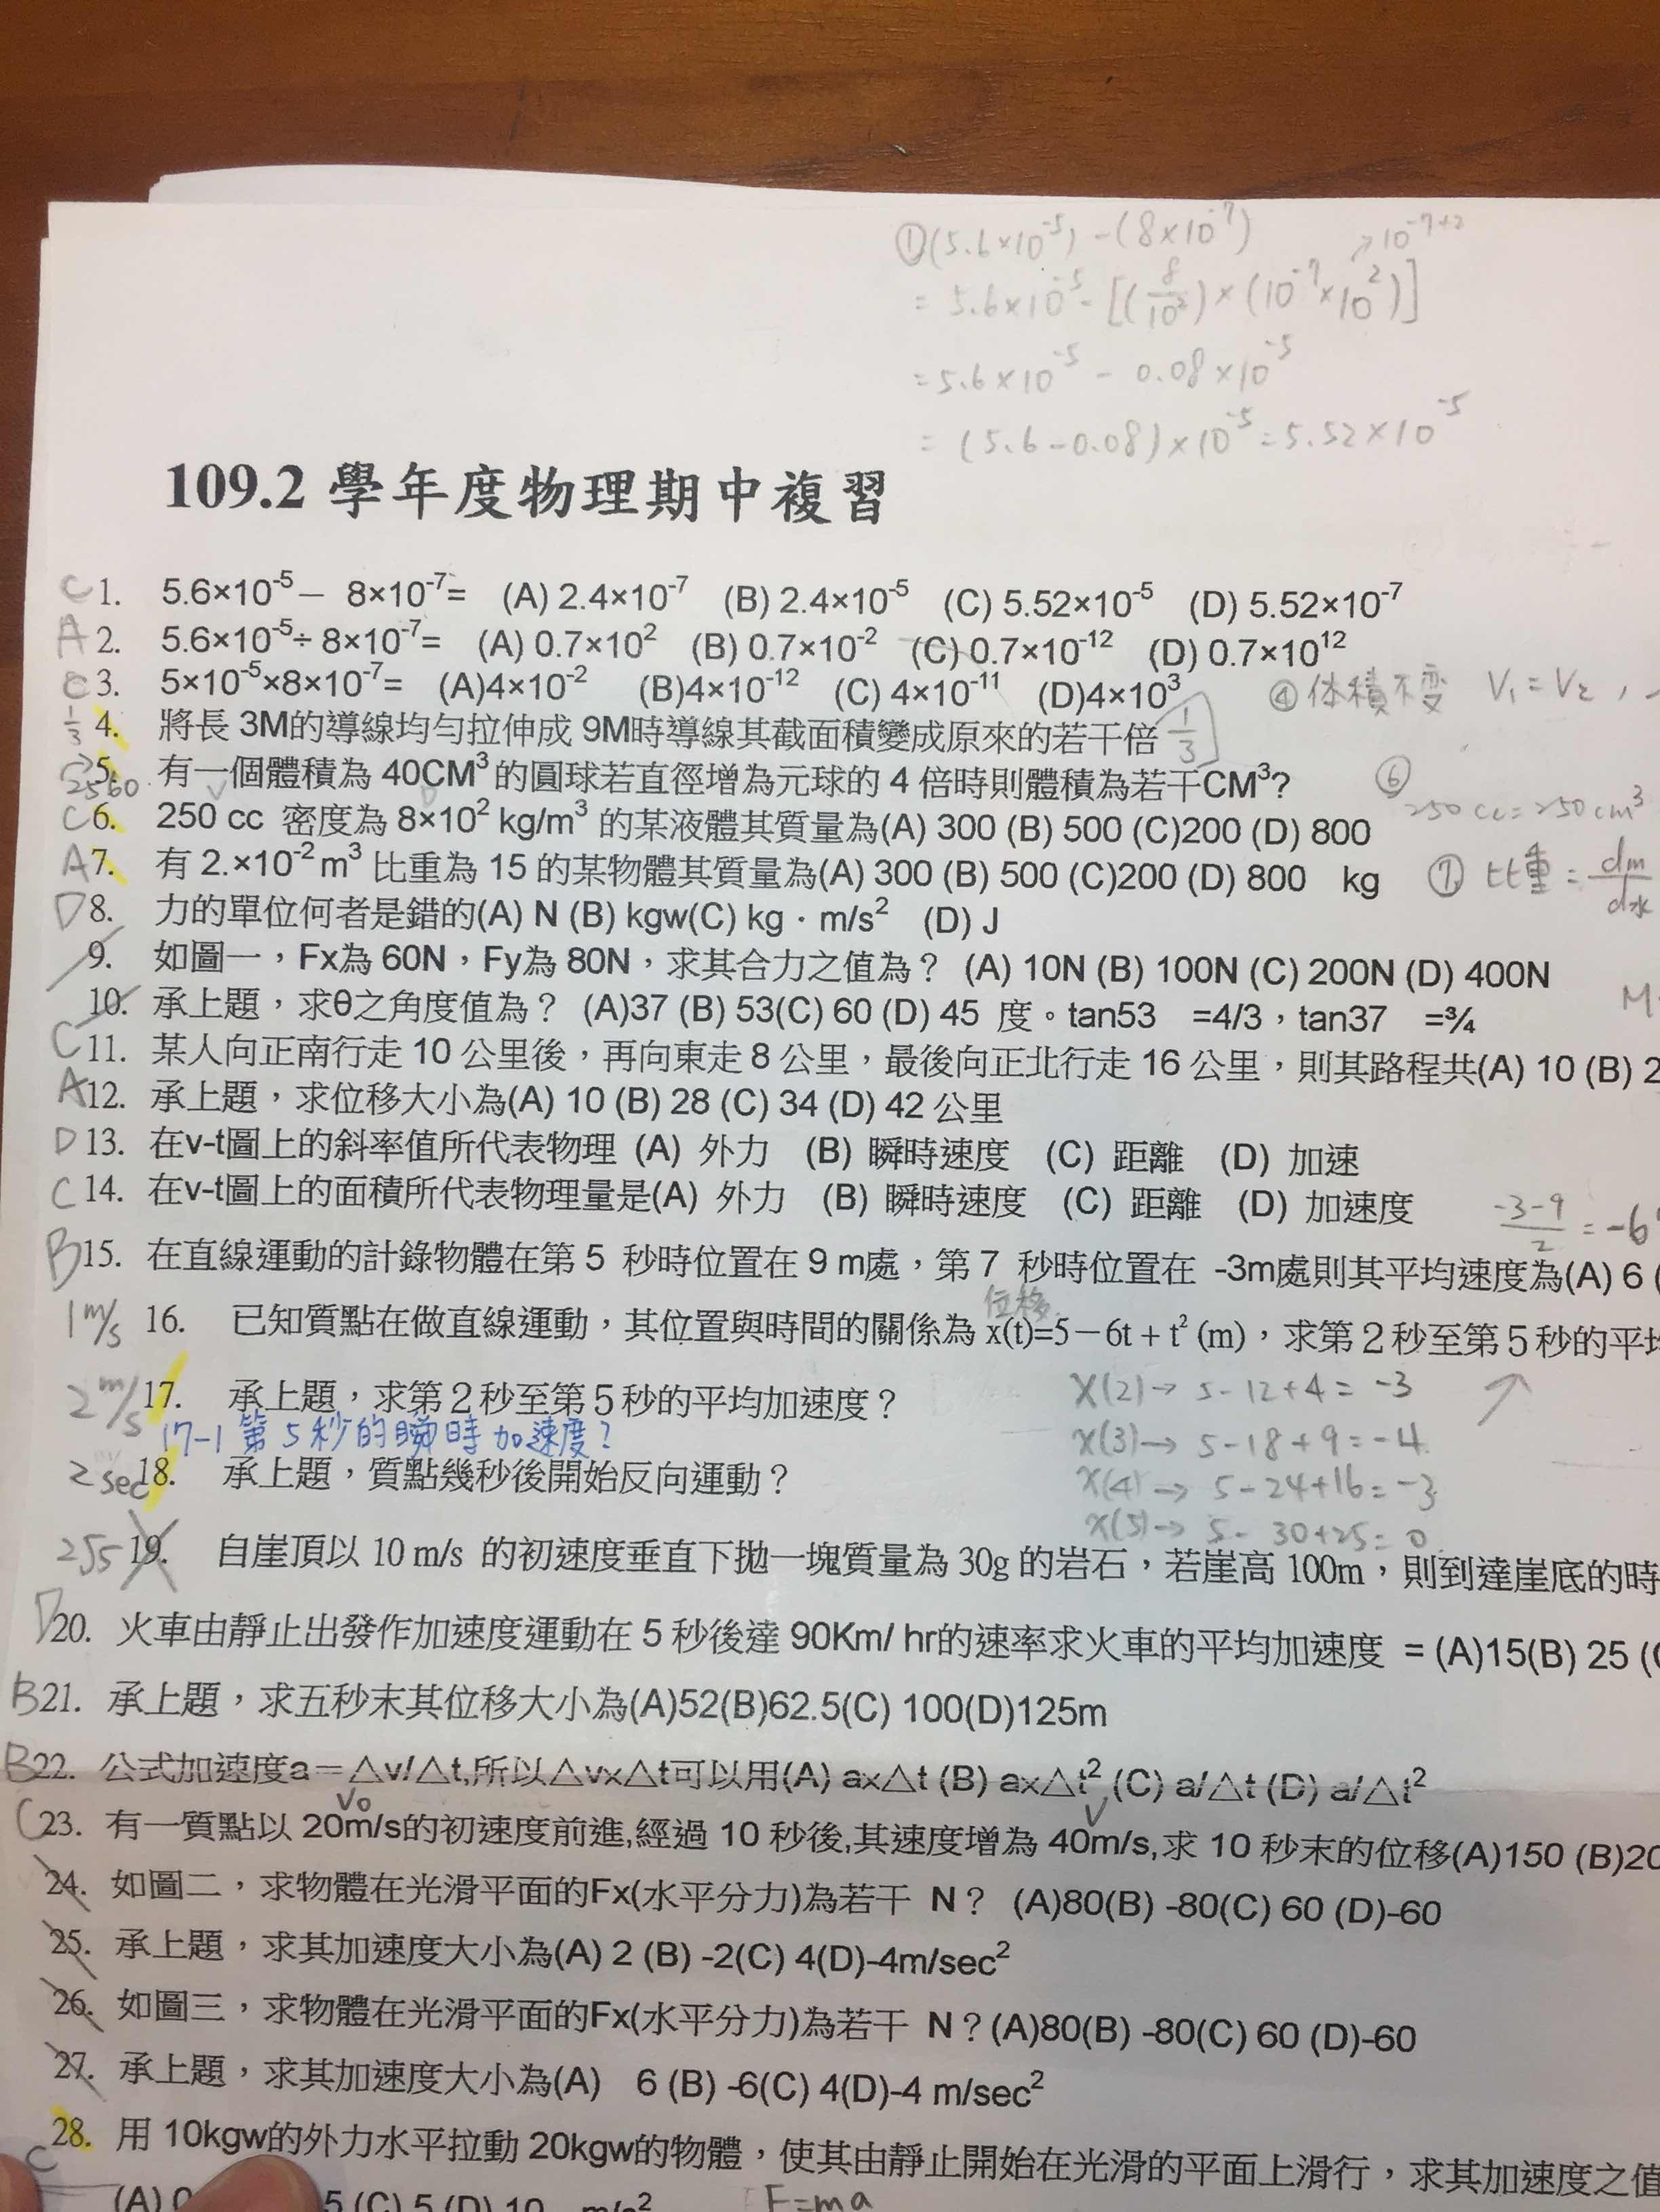 ①(5.6×10⁻⁵)-(8×10⁻⁷)
↗10⁻⁷⁺²
= 5.6×10⁻⁵-[(8/10²)×(10⁻⁷×10²)]
=5.6×10⁻⁵ - 0.08×10⁻⁵
= (5.6-0.08)×10⁻⁵=5.52×10⁻⁵
109.2 學年度物理期中複習
C 1. 5.6×10⁻⁵－ 8×10⁻⁷= (A) 2.4×10⁻⁷ (B) 2.4×10⁻⁵ (C) 5.52×10⁻⁵ (D) 5.52×10⁻⁷
A 2. 5.6×10⁻⁵÷ 8×10⁻⁷= (A) 0.7×10² (B) 0.7×10⁻² (C) 0.7×10⁻¹² (D) 0.7×10¹²
C 3. 5×10⁻⁵×8×10⁻⁷= (A)4×10⁻² (B)4×10⁻¹² (C) 4×10⁻¹¹ (D)4×10³
④体積不变 V₁=V₂,
1/3 4. 將長 3M的導線均勻拉伸成 9M時導線其截面積變成原來的若干倍 1/3
2560 5. 有一個體積為 40CM³ 的圓球若直徑增為元球的 4 倍時則體積為若干CM³?
⑥ 250 cc=250cm³
C 6. 250 cc 密度為 8×10² kg/m³ 的某液體其質量為(A) 300 (B) 500 (C)200 (D) 800
A 7. 有 2.×10⁻² m³ 比重為 15 的某物體其質量為(A) 300 (B) 500 (C)200 (D) 800 kg
⑦ 比重=dm/d水
D 8. 力的單位何者是錯的(A) N (B) kgw(C) kg · m/s² (D) J
9. 如圖一，Fx為 60N，Fy為 80N，求其合力之值為？ (A) 10N (B) 100N (C) 200N (D) 400N
M
10. 承上題，求θ之角度值為？ (A)37 (B) 53(C) 60 (D) 45 度。tan53 =4/3，tan37 =¾
C 11. 某人向正南行走 10 公里後，再向東走 8 公里，最後向正北行走 16 公里，則其路程共(A) 10 (B) 2
A 12. 承上題，求位移大小為(A) 10 (B) 28 (C) 34 (D) 42 公里
D 13. 在v-t圖上的斜率值所代表物理 (A) 外力 (B) 瞬時速度 (C) 距離 (D) 加速
C 14. 在v-t圖上的面積所代表物理量是(A) 外力 (B) 瞬時速度 (C) 距離 (D) 加速度
-3-9/2 = -6
B 15. 在直線運動的計錄物體在第 5 秒時位置在 9 m處，第 7 秒時位置在 -3m處則其平均速度為(A) 6 (
位移
1m/s 16. 已知質點在做直線運動，其位置與時間的關係為 x(t)=5－6t + t² (m)，求第 2 秒至第 5 秒的平均
2m/s 17. 承上題，求第 2 秒至第 5 秒的平均加速度？
17-1 第 5 秒的瞬時加速度?
2sec 18. 承上題，質點幾秒後開始反向運動？
X(2)→ 5-12+4= -3
X(3)→ 5-18+9=-4
X(4)→ 5-24+16=-3
X(5)→ 5- 30+25=0
19. 自崖頂以 10 m/s 的初速度垂直下拋一塊質量為 30g 的岩石，若崖高 100m，則到達崖底的時
D 20. 火車由靜止出發作加速度運動在 5 秒後達 90Km/ hr的速率求火車的平均加速度 = (A)15(B) 25 (
B 21. 承上題，求五秒末其位移大小為(A)52(B)62.5(C) 100(D)125m
B 22. 公式加速度a＝△v/△t,所以△vx△t可以用(A) ax△t (B) ax△t² (C) a/△t (D) a/△t²
V₀ V
C 23. 有一質點以 20m/s的初速度前進,經過 10 秒後,其速度增為 40m/s,求 10 秒末的位移(A)150 (B)20
24. 如圖二，求物體在光滑平面的Fx(水平分力)為若干 N？ (A)80(B) -80(C) 60 (D)-60
25. 承上題，求其加速度大小為(A) 2 (B) -2(C) 4(D)-4m/sec²
26. 如圖三，求物體在光滑平面的Fx(水平分力)為若干 N？(A)80(B) -80(C) 60 (D)-60
27. 承上題，求其加速度大小為(A) 6 (B) -6(C) 4(D)-4 m/sec²
C 28. 用 10kgw的外力水平拉動 20kgw的物體，使其由靜止開始在光滑的平面上滑行，求其加速度之值
(A) 0 5 (C) 5 (D) 10 m/s² F=ma